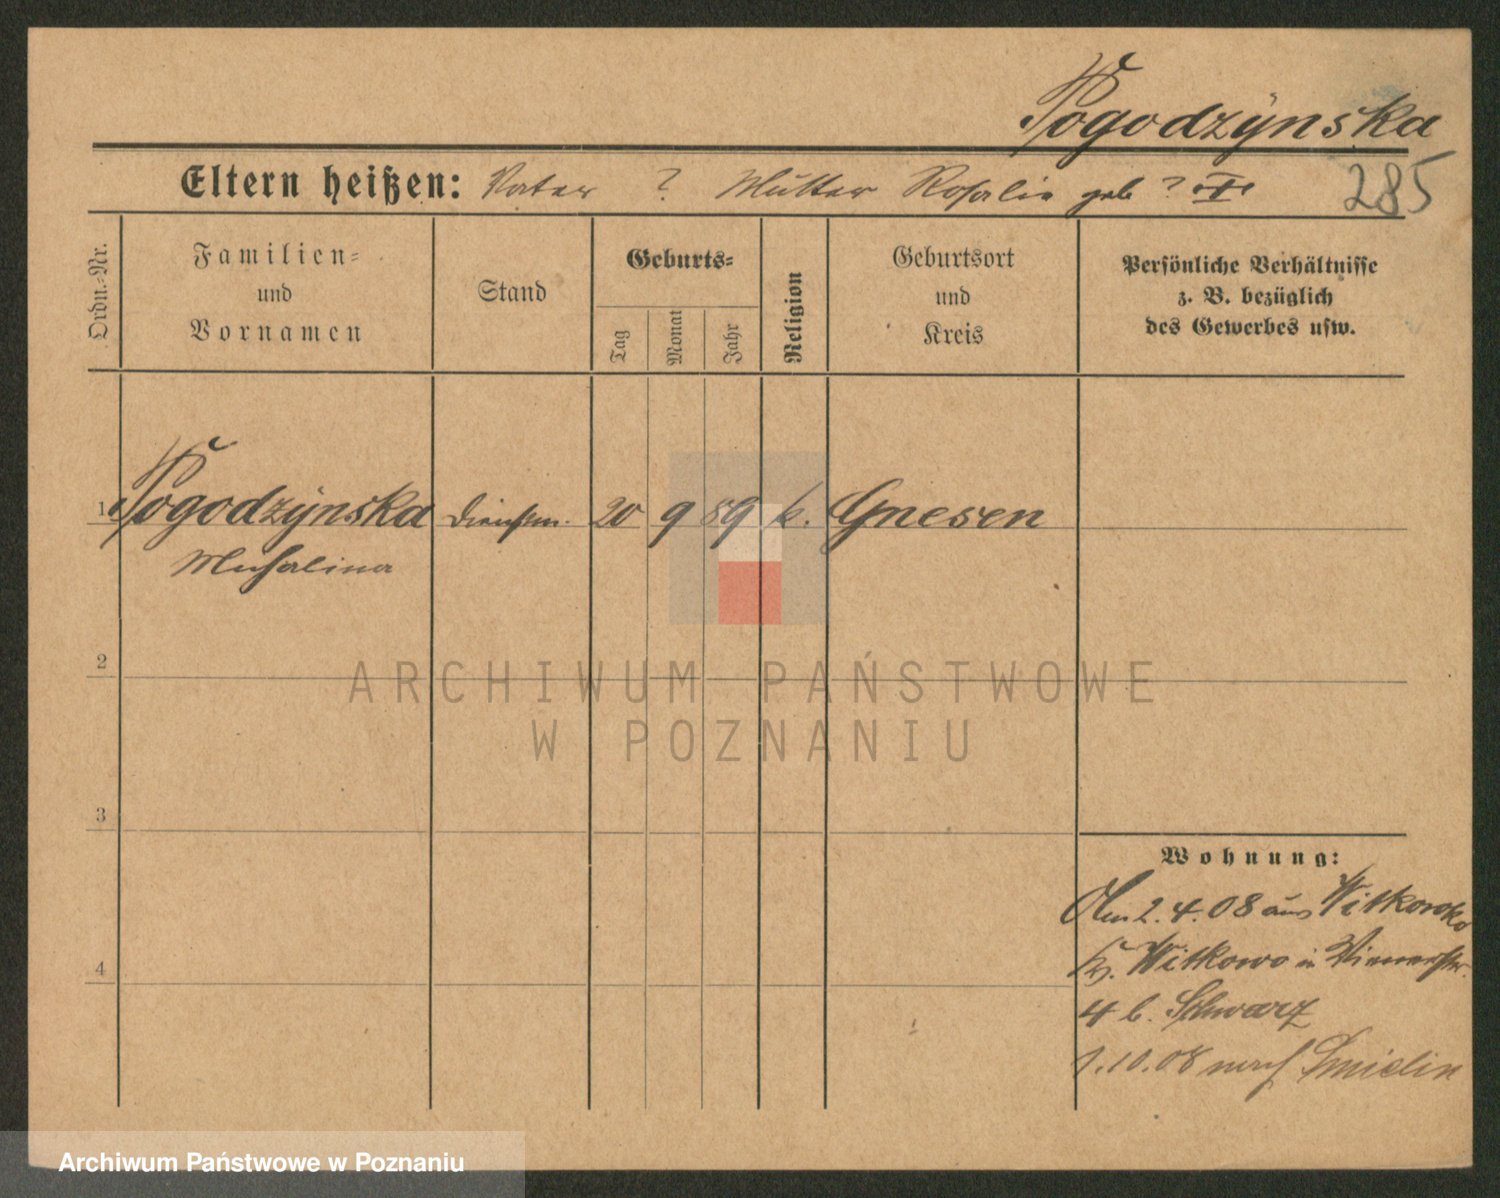 Pogodzÿnska
Eltern heißen: Vater ? Mutter Rosalie geb ?
285
Ordn.-Nr.
Familien-
und
Vornamen
Stand
Geburts-
Tag
Monat
Jahr
Religion
Geburtsort
und
Kreis
Persönliche Verhältnisse
z. B. bezüglich
des Gewerbes usw.
1 Pogodzÿnska Dienstm. 20 9 89 k. Gnesen
Michalina
2
3
4
Wohnung:
Am 2.4.08 aus
Kr. Witkowo in
4 b. Schwarz
1.10.08 nach
ARCHIWUM PAŃSTWOWE
W POZNANIU
Archiwum Państwowe w Poznaniu